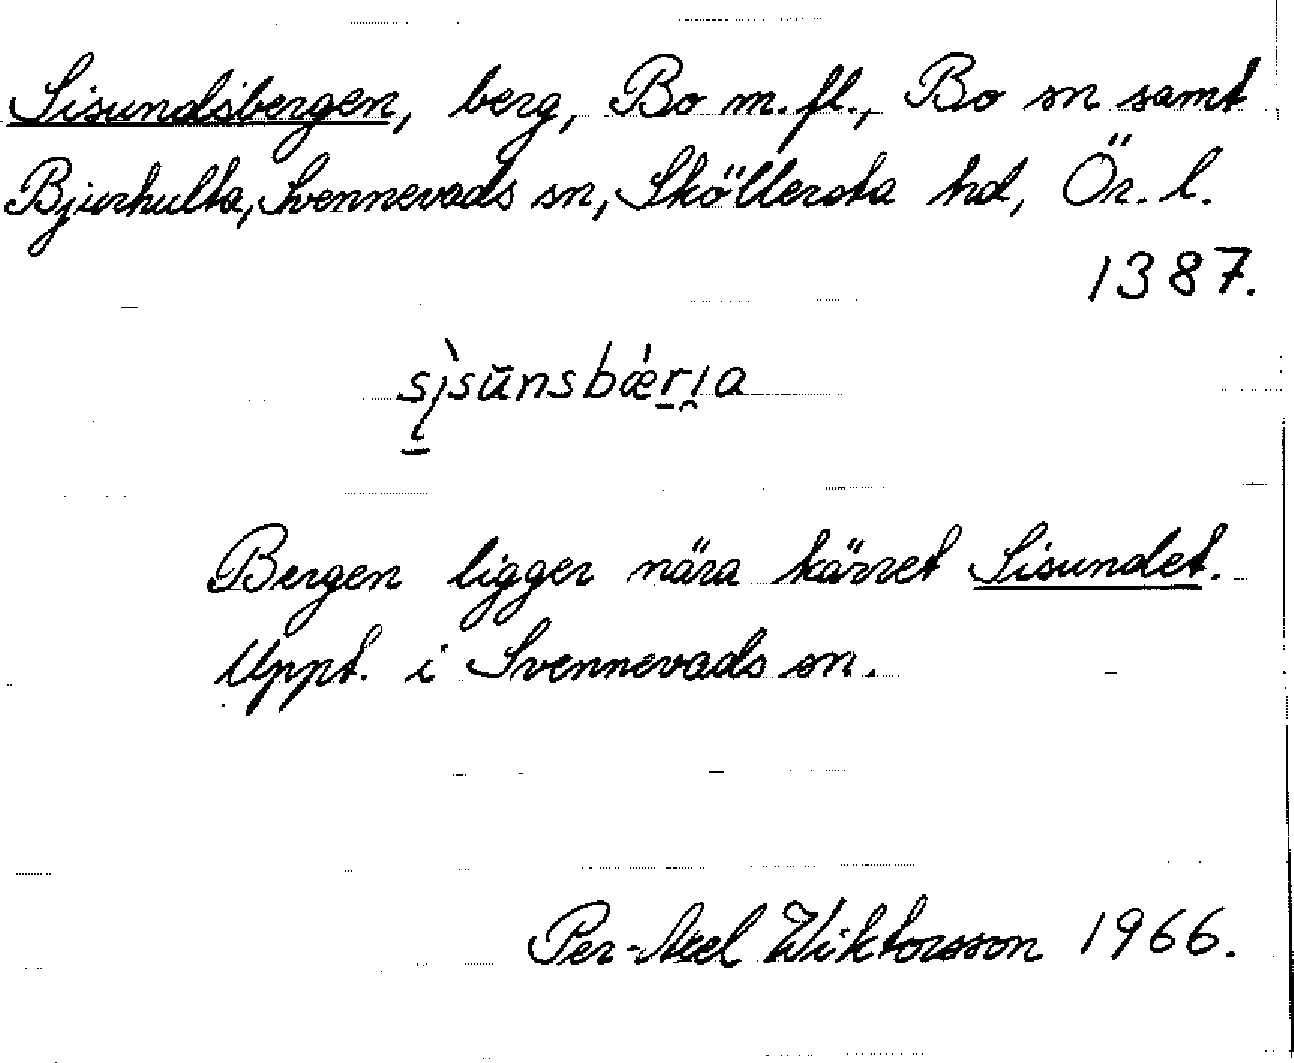 Sisundsbergen, berg, Bo m.fl., Bo sn samt
Bjurhulta, Svennevads sn, Sköllersta hd, Ör. l.
1387.
sìsūnsbæ̀rɪ̯a
Bergen ligger nära kärret Sisundet.
Uppt. i Svennevads sn.
Per-Axel Wiktorsson 1966.